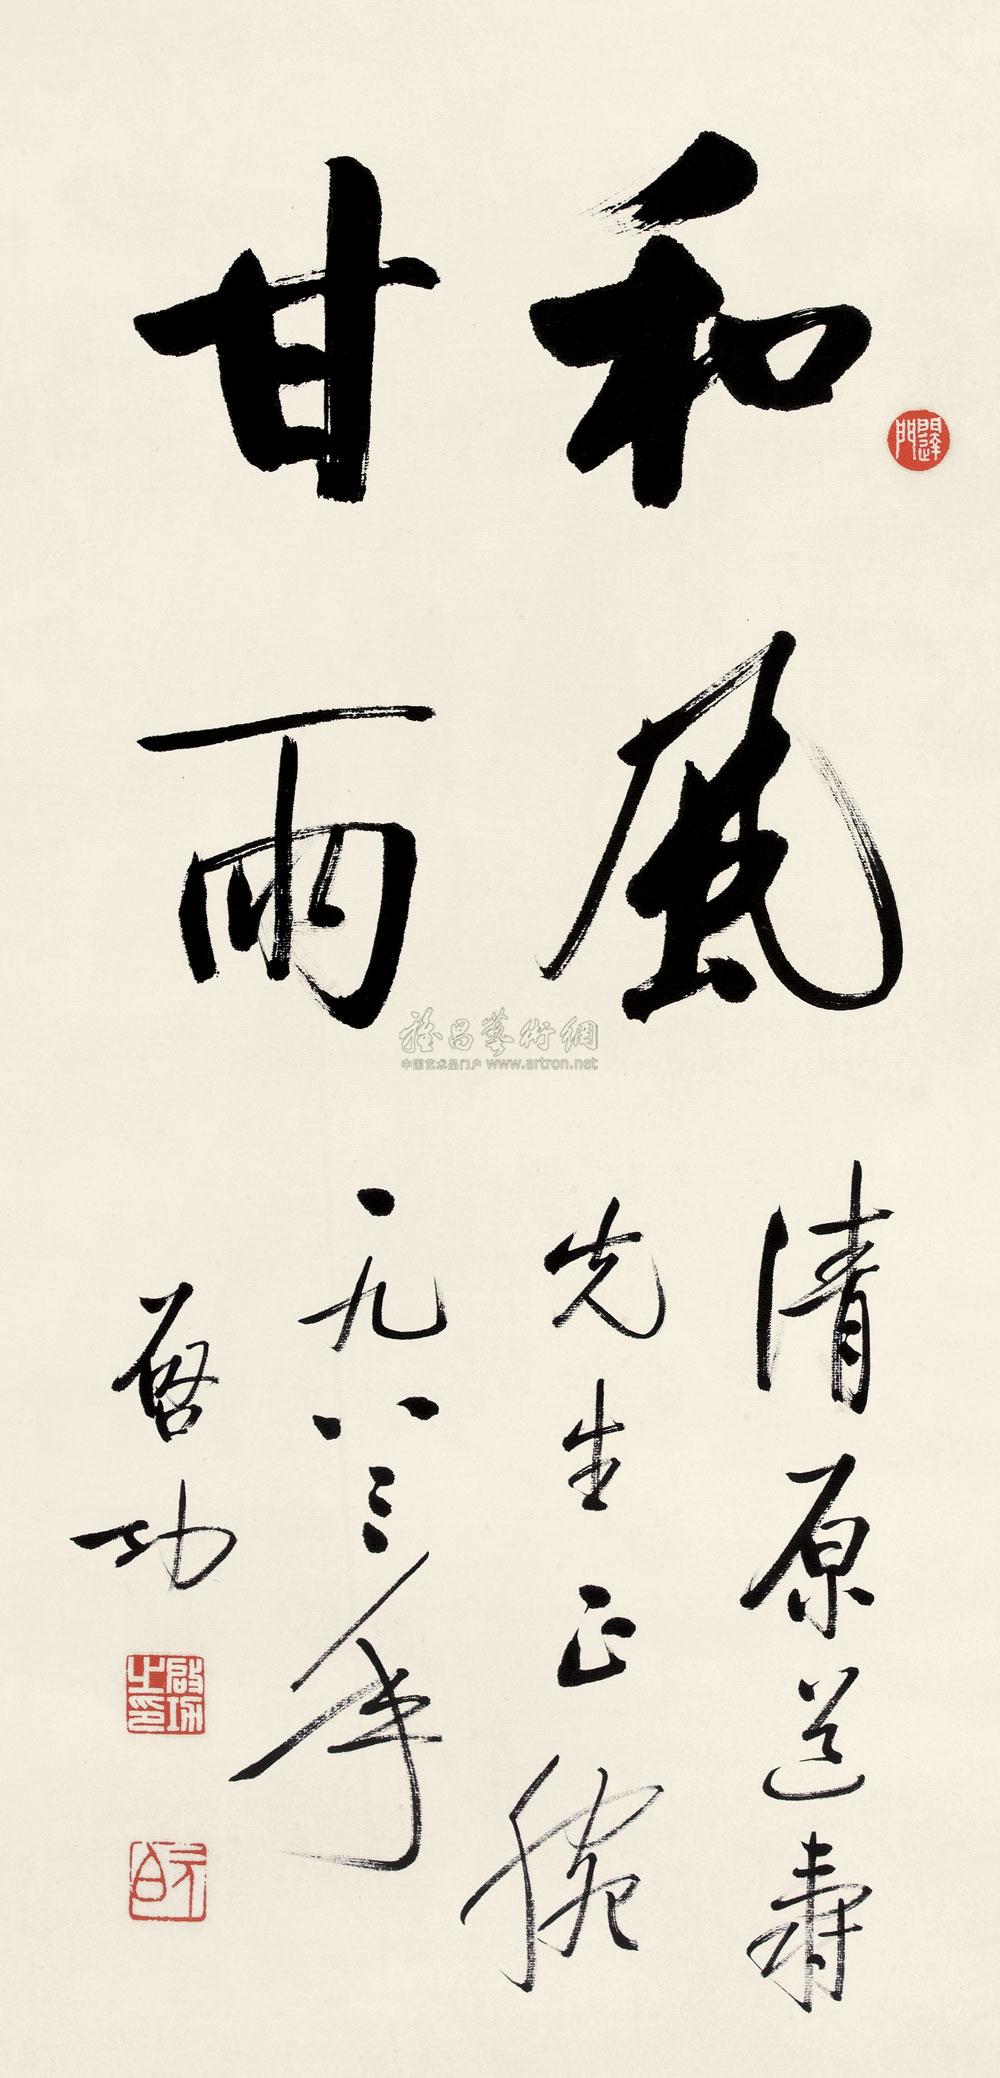 和風
甘雨
清原道壽
先生正腕
一九八三年
啓功
啓功之印
元白
雅昌藝術網
中国艺术品门户 www.artron.net